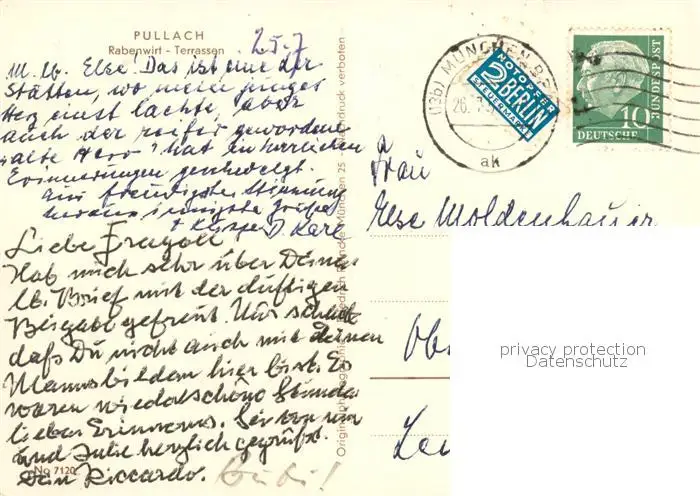 PULLACH
Rabenwirt - Terrassen
25.7
M. lb. Else! Das ist eine der
Stätten, wo mein junges
Herz einst lachte, aber
auch der reifer gewordene
"alte Herr" hat in herrlichen
Erinnerungen geschwelgt.
Aus freudigster Stimmung
heraus innigste Grüße
+ Küsse D. Karl
Liebe
Hab mich sehr über Deinen
lb. Brief mit der duftigen
Beigabe gefreut. Nur schade
daß Du nicht auch mit deinen
Mannsbildern hier bist. Es
waren wieder schöne Stunden
lieber Erinnerns. Sei von mir
und Julie herzlich gegrüßt.
Dein Riccardo.
No 7120
München 25
druck verboten
(13b) MÜNCHEN BZ
26. 7.
ak
NOTOPFER
2 BERLIN
STEUERMARKE
10
DEUTSCHE
BUNDESPOST
Frau
Else Moldenhauer
privacy protection
Datenschutz